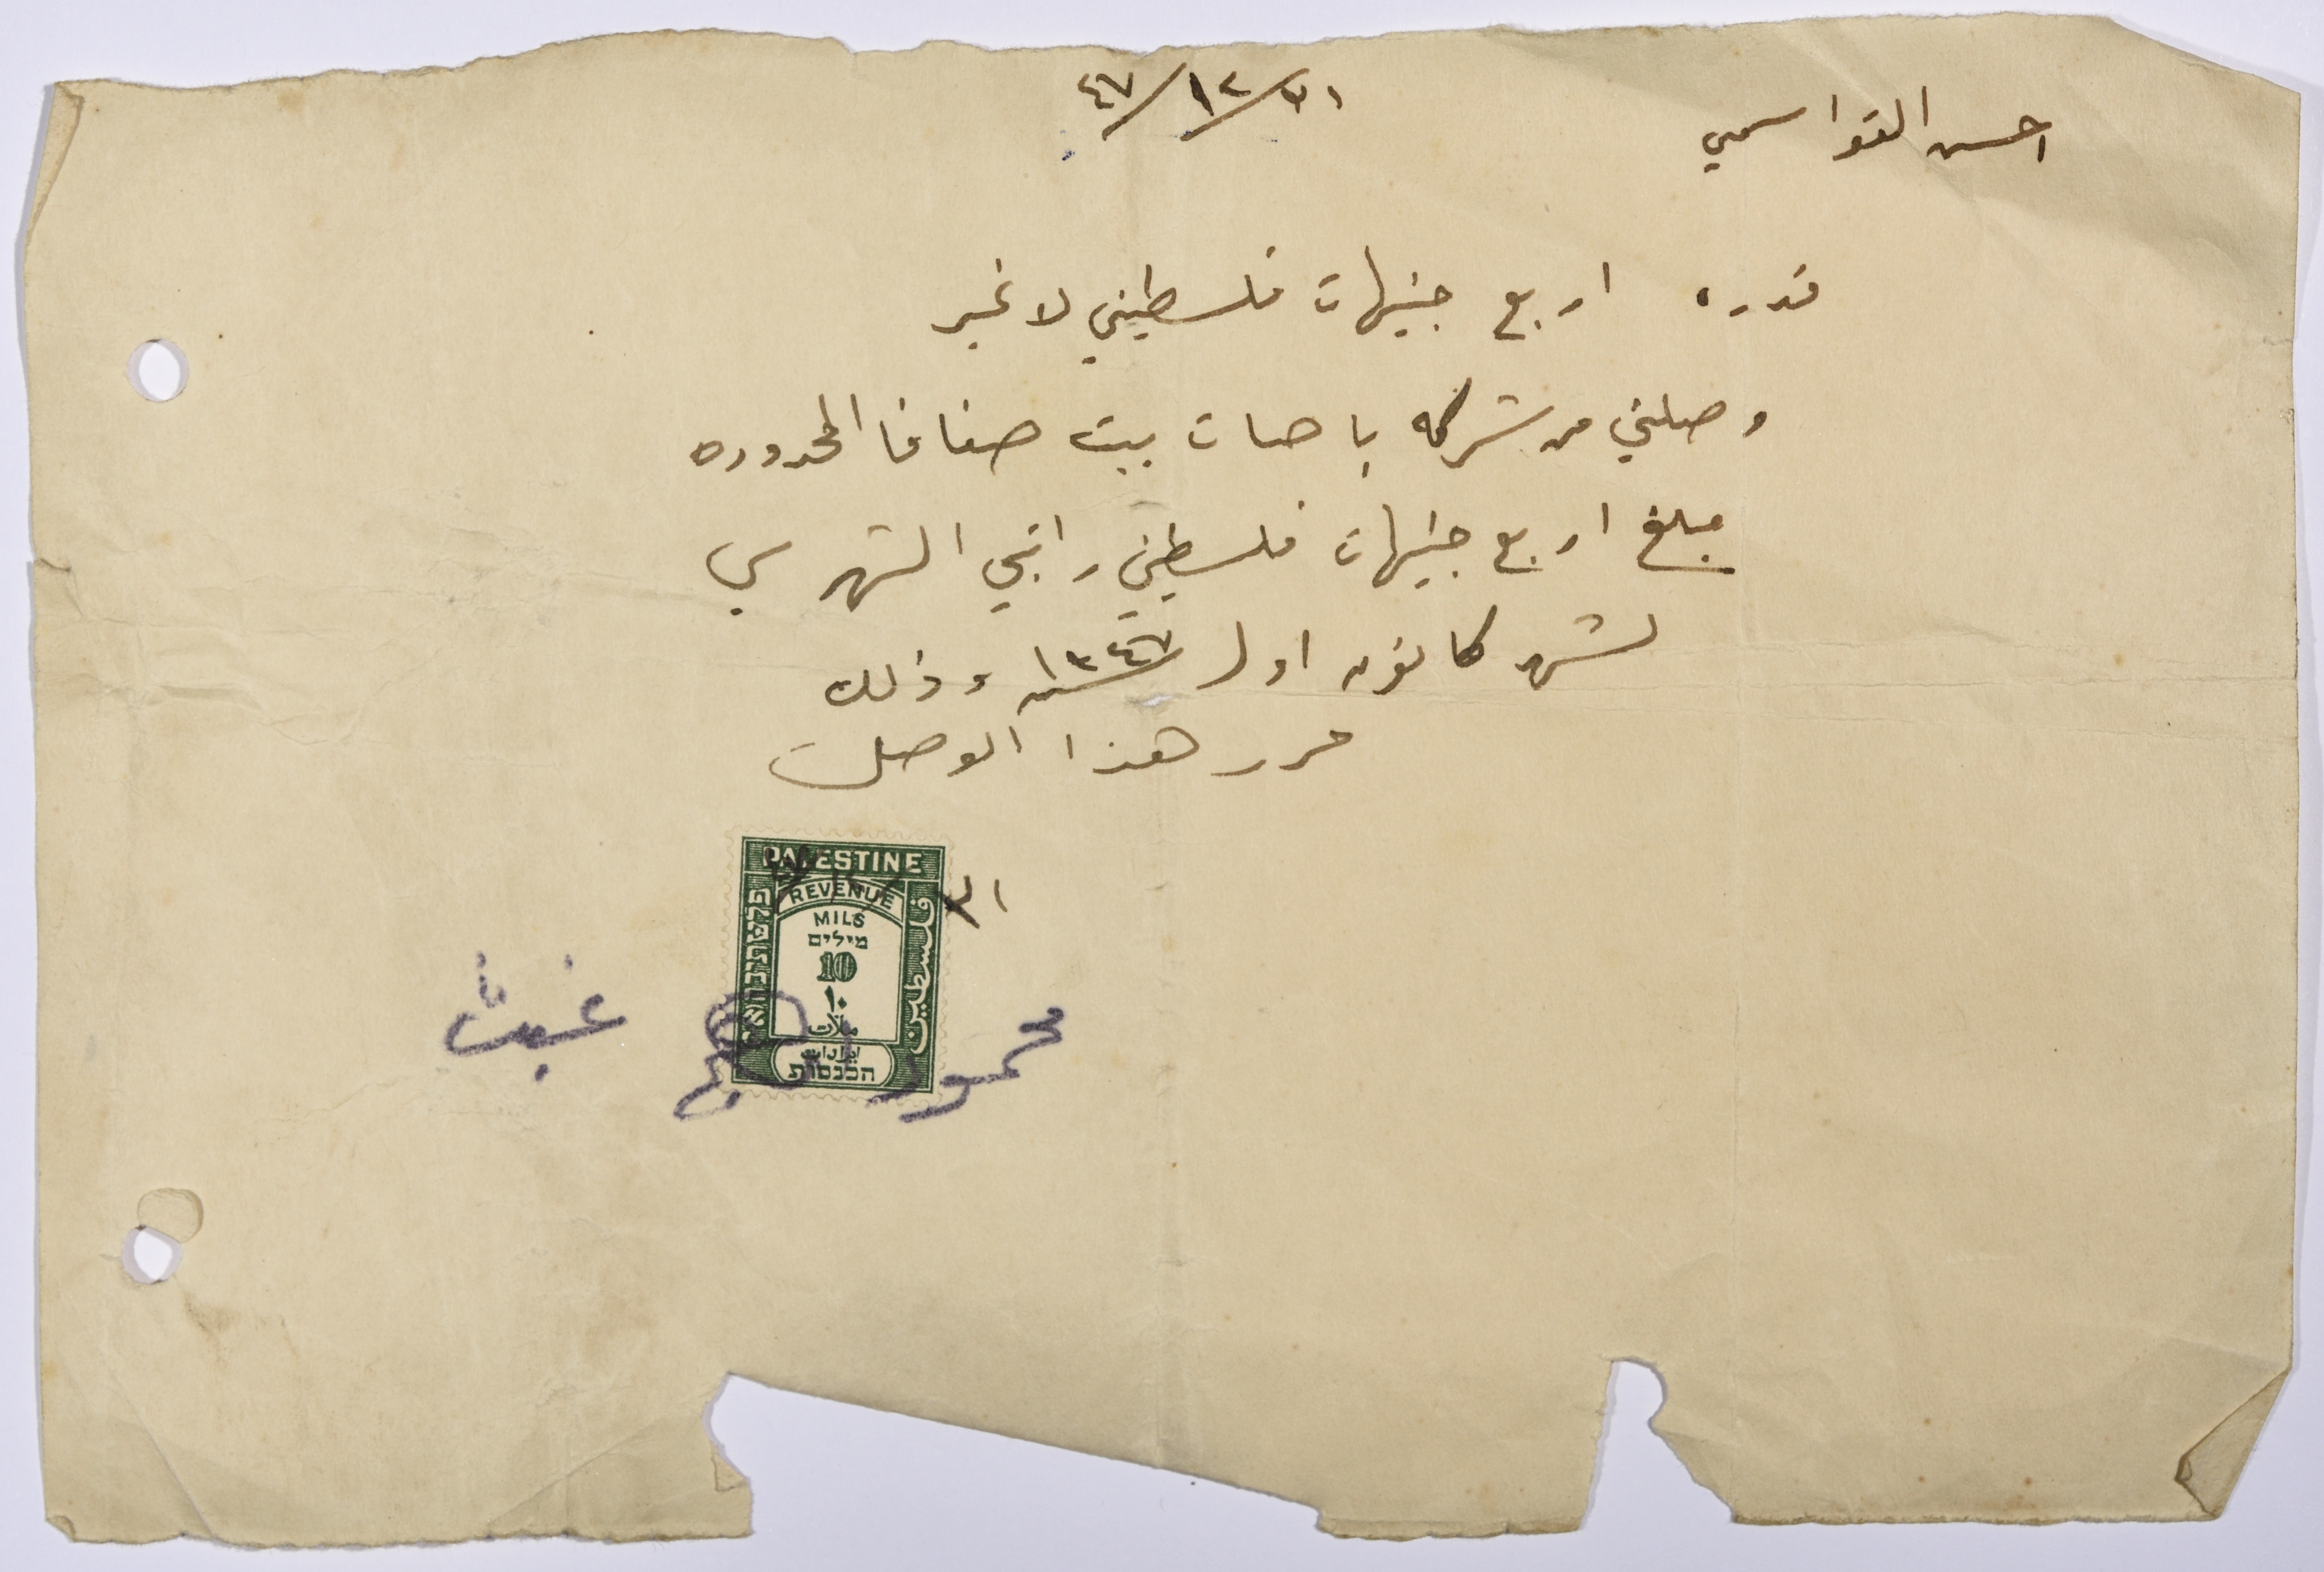 احسن القواسمي
٣١/١٢/٤٧
قدره اربع جنيهات فلسطيني لا غير
وصلني من شركه باصات بيت صفافا المحدوده
مبلغ اربع جنيهات فلسطيني راتبي الشهري
لشهر كانون اول سنة ١٩٤٧ وذلك
حرر هذا الوصل
٣١
PALESTINE
REVENUE
MILS
מילים
10
١٠
ملات
ايرادات
הכנסות
פלשתינה א״י
فلسطين
محمود
غيث